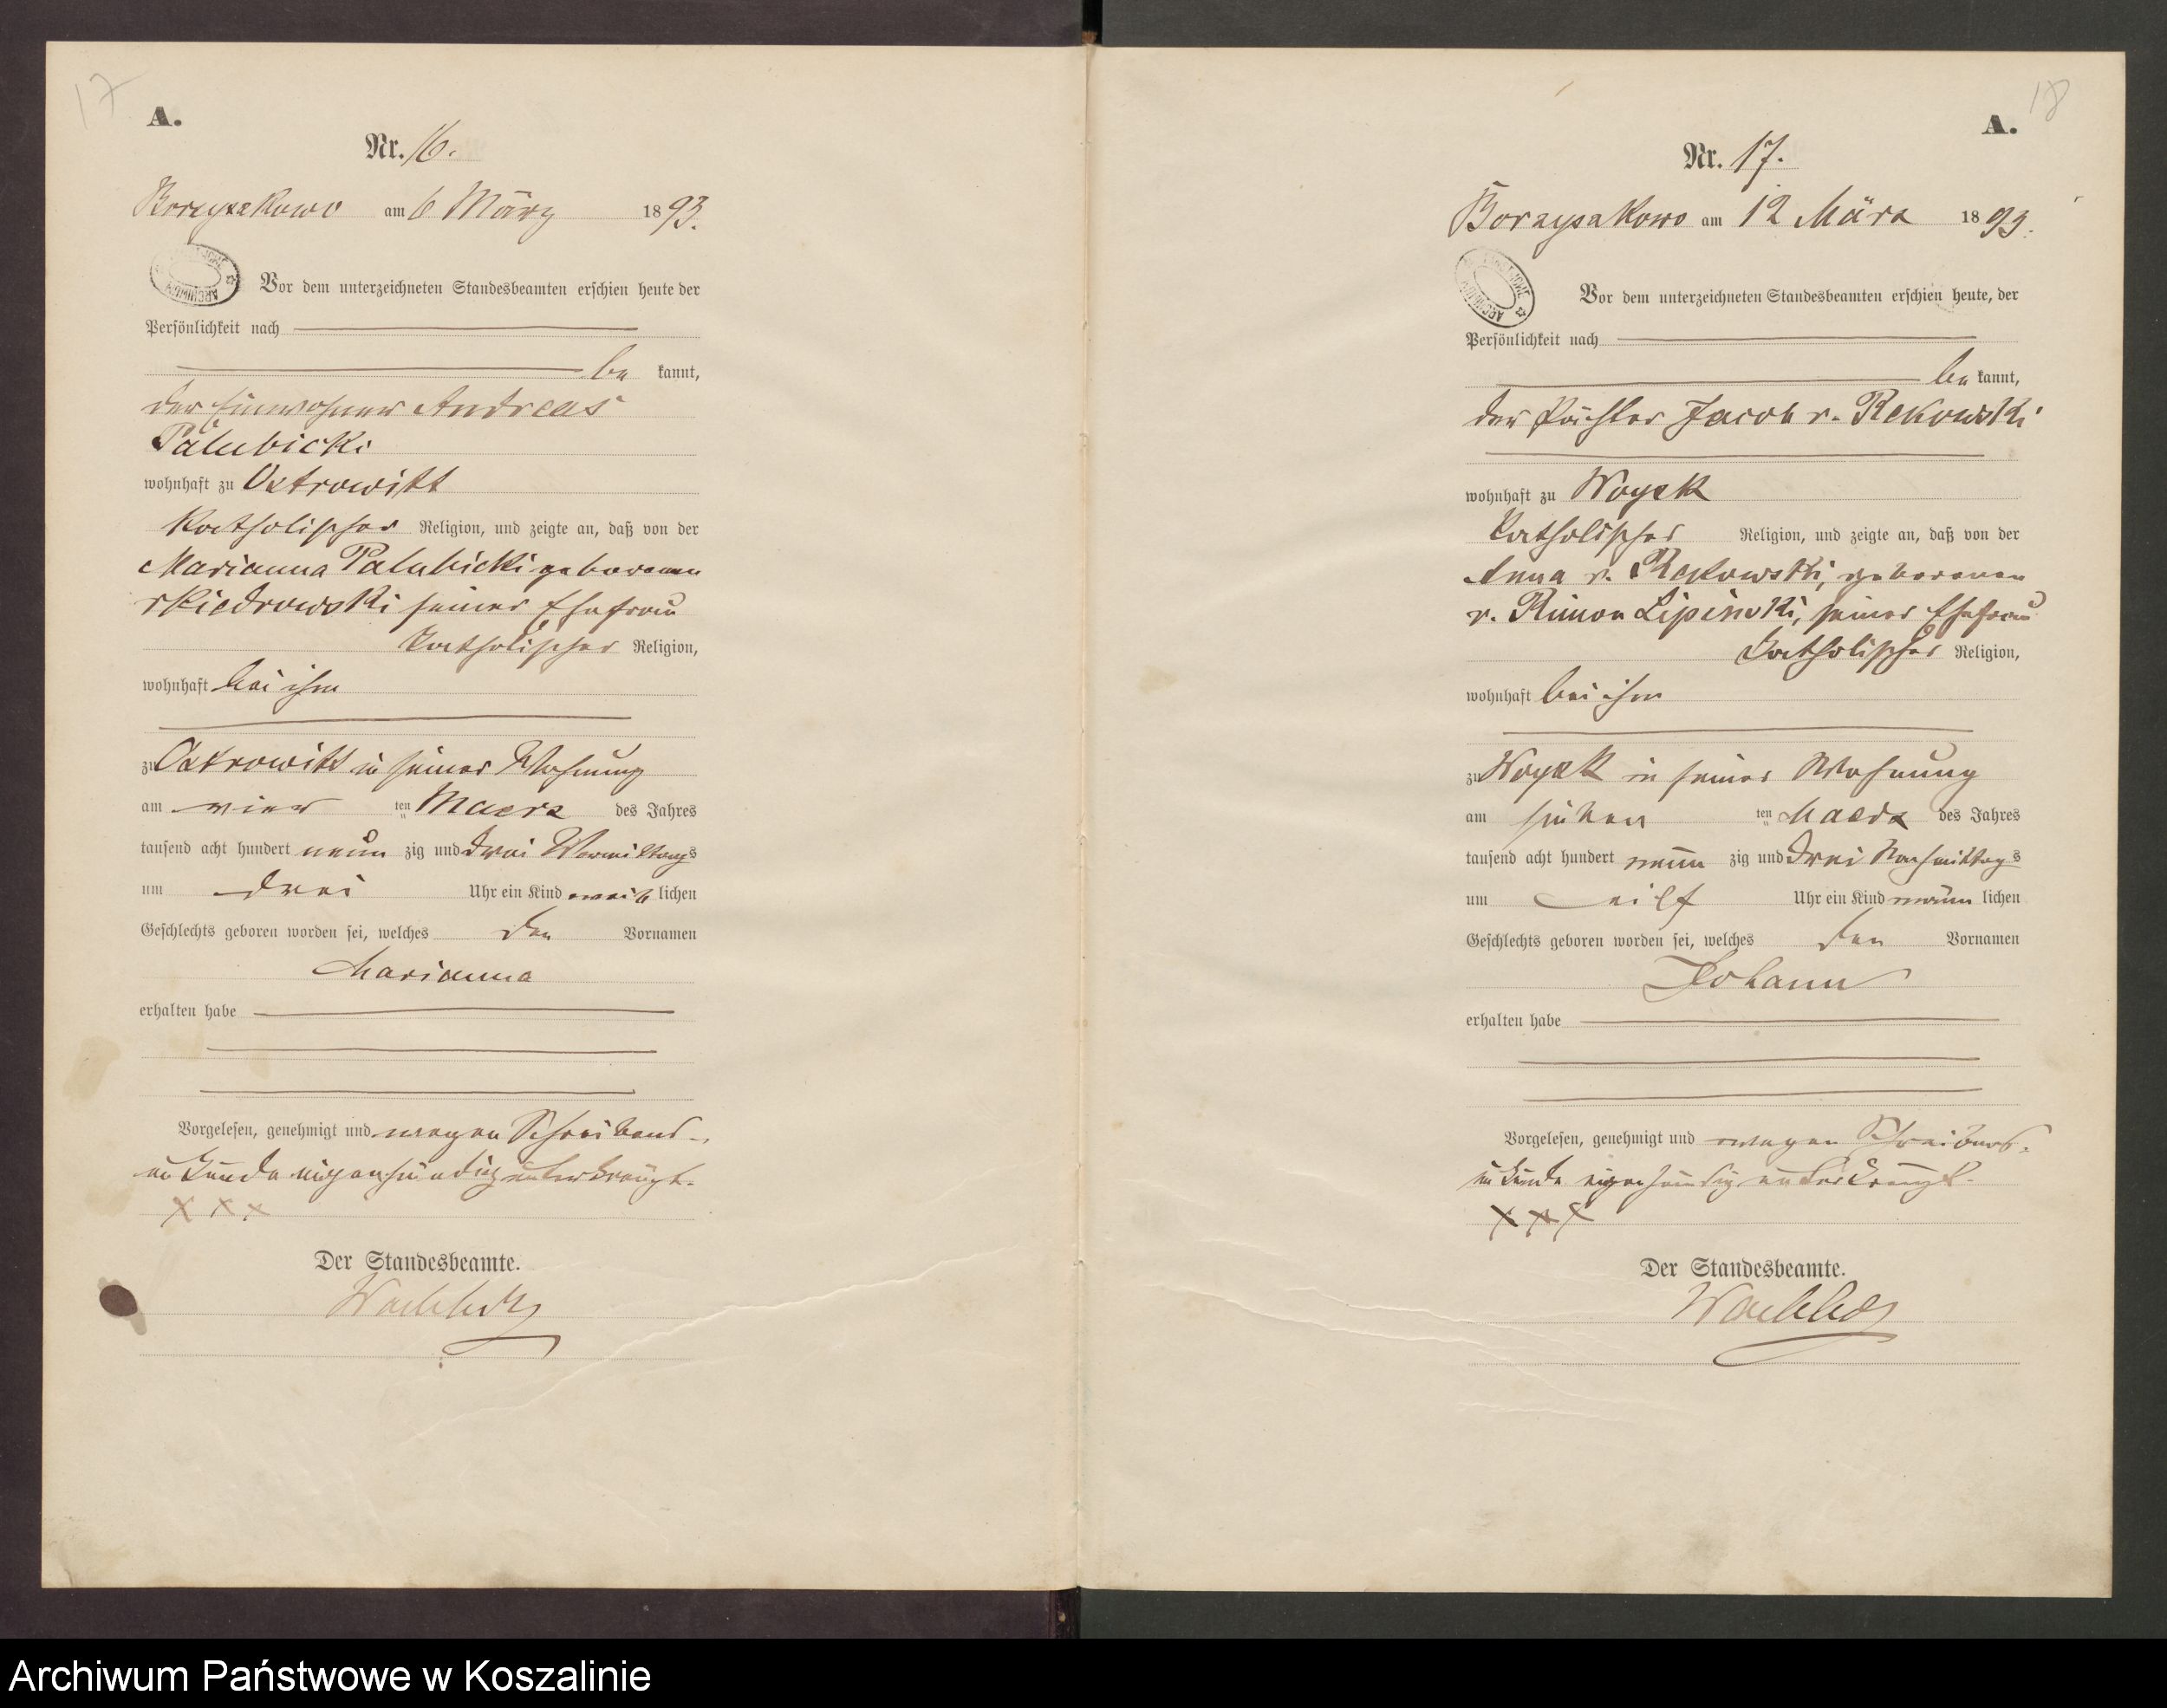 17
A.
Nr. 16.
Borzyszkowo am 6 März 1893.
Vor dem unterzeichneten Standesbeamten erschien heute der
Persönlichkeit nach
be kannt,
der Einwohner Andreas
Palubicki
wohnhaft zu Ostrowitt
Katholischer Religion, und zeigte an, daß von der
Marianna Palubicki geborenen
Kiedrowski seiner Ehefrau
Katholischer Religion,
wohnhaft bei ihm
zu Ostrowitt in seiner Wohnung
am vier ten Maerz des Jahres
tausend acht hundert neun zig und drei Vormittags
um drei Uhr ein Kind weib lichen
Geschlechts geboren worden sei, welches den Vornamen
Marianna
erhalten habe
Vorgelesen, genehmigt und wegen Schreibens-
unkunde eigenhändig unterkreuzt.
XXX
Der Standesbeamte.
18
A.
Nr. 17.
Borzyszkowo am 12 März 1893.
Vor dem unterzeichneten Standesbeamten erschien heute, der
Persönlichkeit nach
be kannt,
der Pächter Jacob v. Rekowski
wohnhaft zu Woysk
Katholischer Religion, und zeigte an, daß von der
Anna v. Rekowski, geborenen
v. Lipinski, seiner Ehefrau
Katholischer Religion,
wohnhaft bei ihm
zu Woysk in seiner Wohnung
am sieben ten Maerz des Jahres
tausend acht hundert neun zig und drei Nachmittags
um eilf Uhr ein Kind männ lichen
Geschlechts geboren worden sei, welches den Vornamen
Johann
erhalten habe
Vorgelesen, genehmigt und wegen Schreibens-
unkunde eigenhändig unterkreuzt.
XXX
Der Standesbeamte.
Archiwum Państwowe w Koszalinie